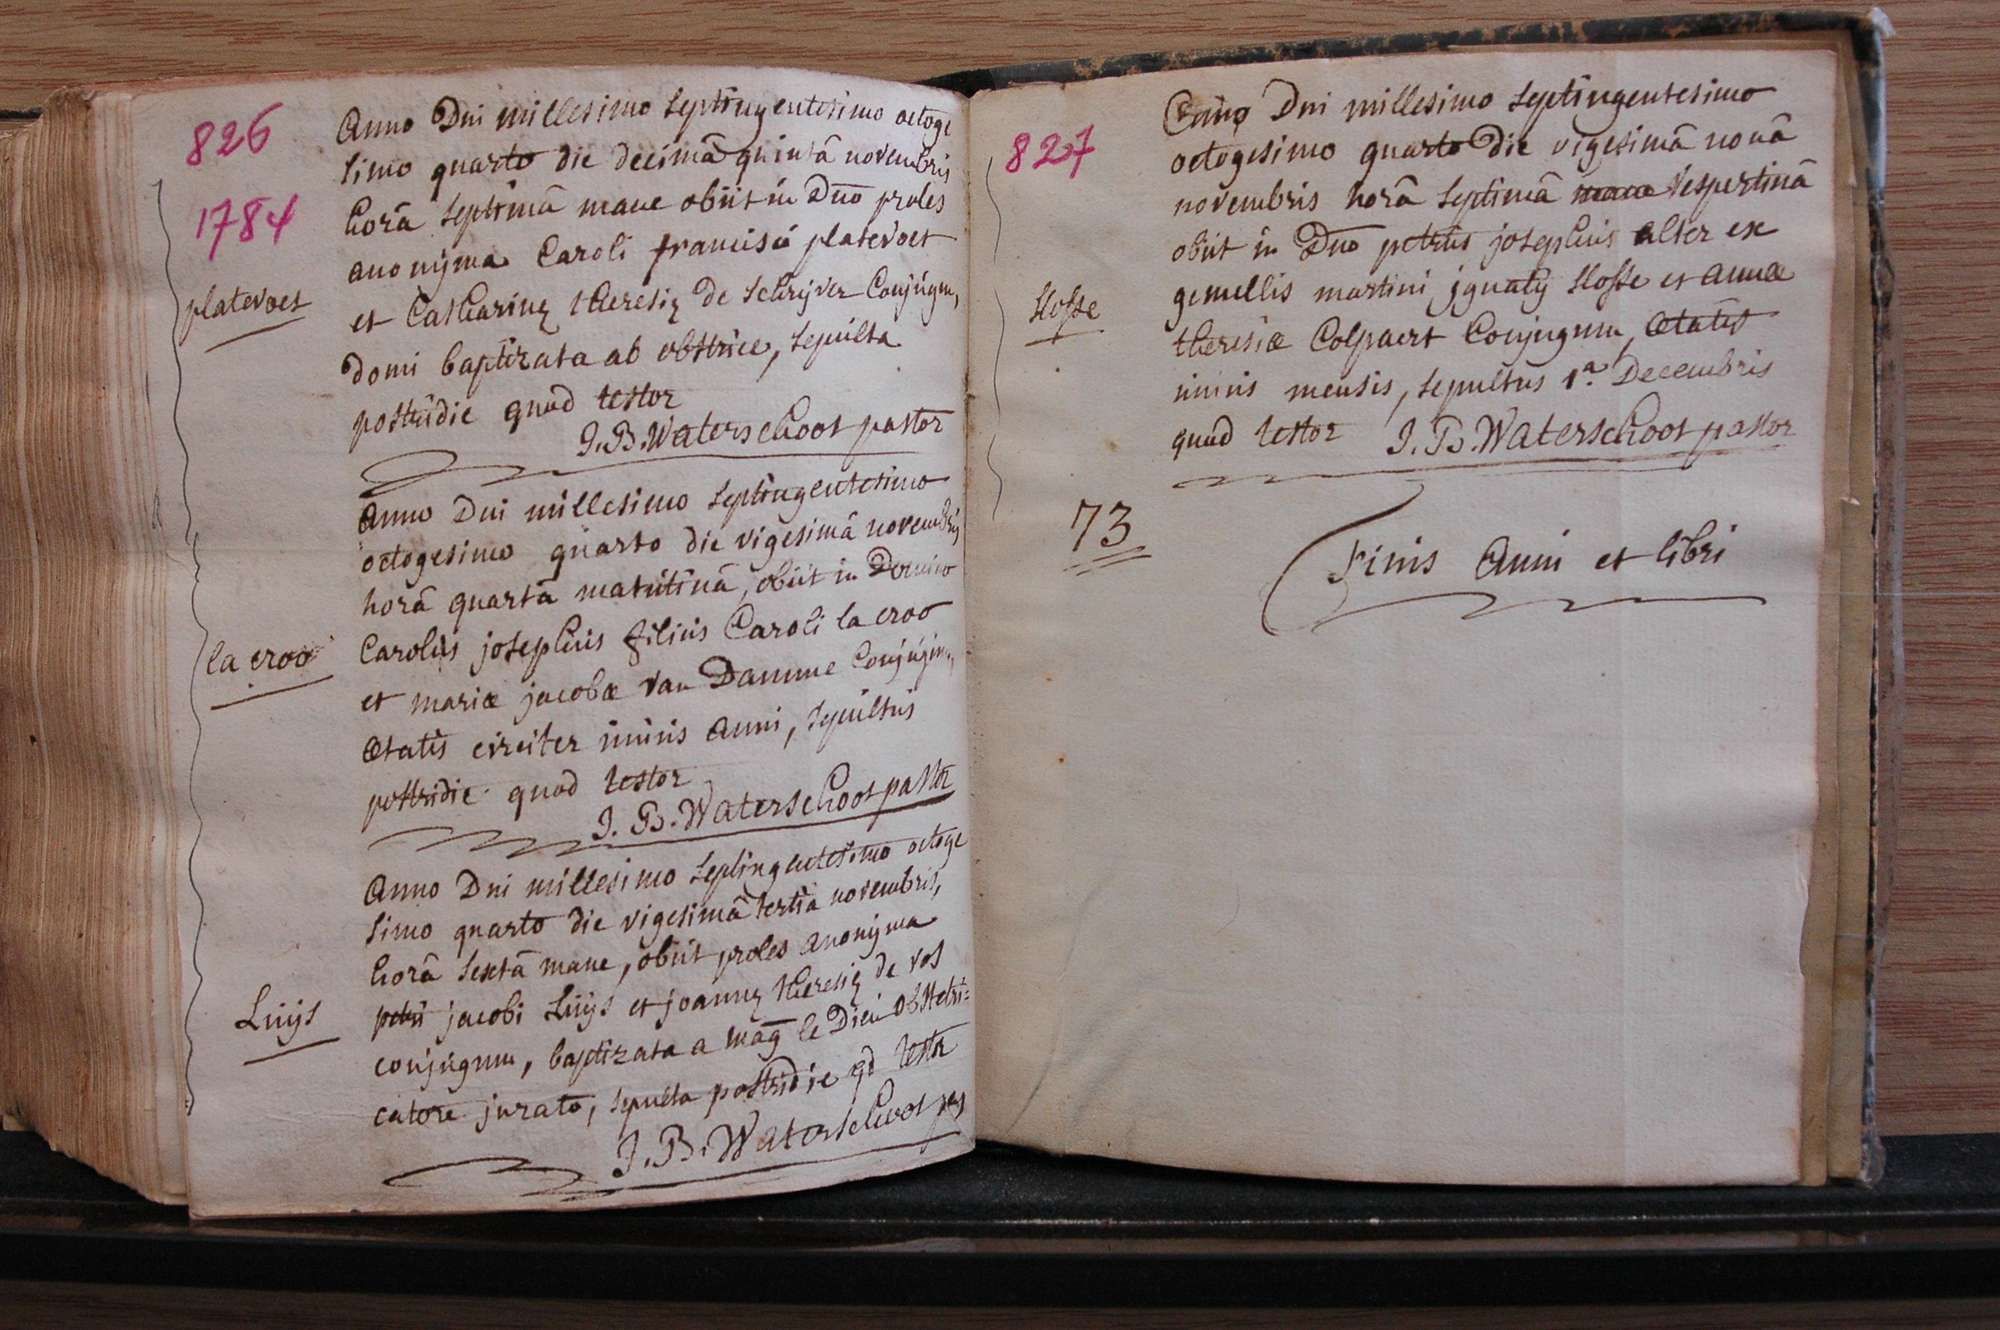 826
1784
Anno Dni millesimo septingentesimo octoge
simo quarto die decimâ quintâ novembris
horâ septimâ mane obiit in Dno proles
anonÿma Caroli francisci platevoet
platevoet
et Catharinę theresię de schrijver Conjugum,
domi baptizata ab obstrice, sepulta
postridie quod testor
J.B.Waterschoot pastor
Anno Dni millesimo septingentesimo
octogesimo quarto die vigesimâ novembris
horâ quartâ matutinâ, obiit in Domino
Carolus josephus filius Caroli la croo
la croo
et mariæ jacobæ van Damme Conjugum,
ætatis circiter unius anni, sepultus
postridie quod testor
J. B. Waterschoot pastor
Anno Dni millesimo septingentesimo octoge
simo quarto die vigesimâ tertia novembris,
horâ sextâ mane, obiit proles anonÿma
petri jacobi Luÿs et joannę theresię de vos
Luÿs
conjugum, baptizata a mag le Dieu obstetri=
catore jurato, sepulta postridie qd testor
J.B.Waterschoot pas
827
Anno Dni millesimo septingentesimo
octogesimo quarto die vigesimâ nonâ
novembris horâ septimâ mane vespertinâ
obiit in Dno petrus josephus alter ex
gemellis martini jgnatÿ slosse et annæ
slosse
theresiæ Colpaert Conjugum, ætatis
unius mensis, sepultus 1.a Decembris
quod testor J. B. Waterschoot pastor
73
Finis Anni et libri